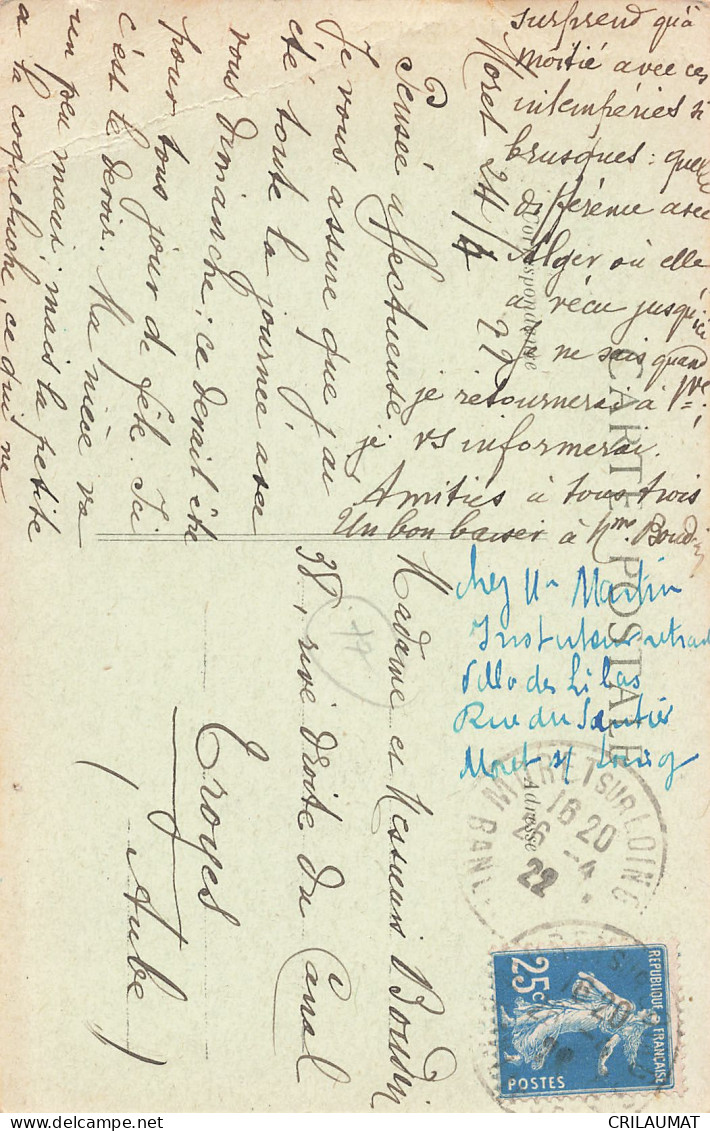 Moret 24/4 22
Pensée affectueuse
Je vous assure que j'ai
été toute la journée avec
vous dimanche ; ce devait être
pour tous jour de fête. Ici
c'est le devoir. Ma mère va
un peu mieux, mais la petite
a la coqueluche, ce qui ne
surprend qu'à
moitié avec ces
intempéries si
brusques : quelle
différence avec
Alger où elle
a vécu jusqu'ici
je ne sais quand
je retournerai à
je vs informerai.
Amitiés à tous trois
Un bon baiser à Mme Boudin
CARTE POSTALE
Correspondance
Adresse
Madame et Messieurs Boudin
38, rive droite du Canal
Troyes
(Aube)
17
chez Mr Martin
Instituteur retraité
Villa des Lilas
Rue du Sentier
Moret s/ Loing
MORET SUR LOING
16 20
26 -4
22
REPUBLIQUE FRANÇAISE
25c
POSTES
CRILAUMAT